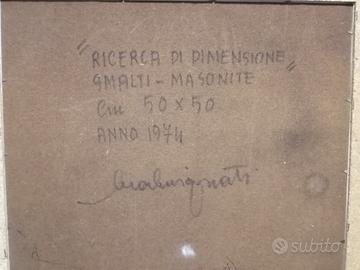 "RICERCA DI DIMENSIONE"
SMALTI - MASONITE
Cm 50 X 50
ANNO 1974
subito